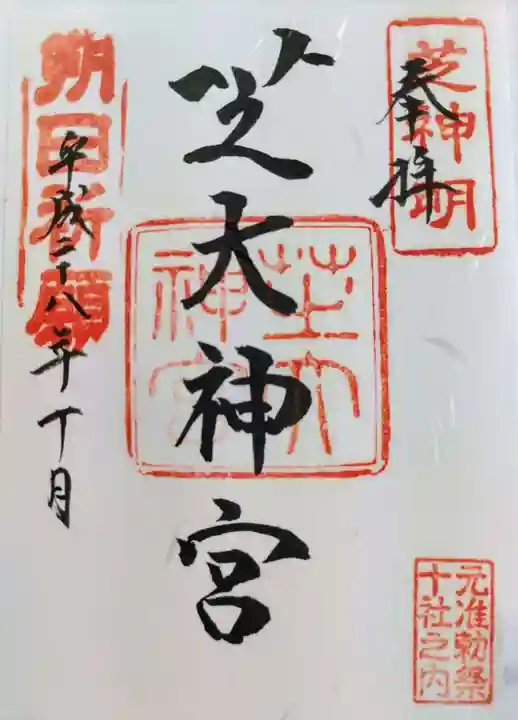 奉拝
芝神明
芝大神宮
芝大
神宮
朔日祈願
平成二十八年十月
元准勅祭
十社之内